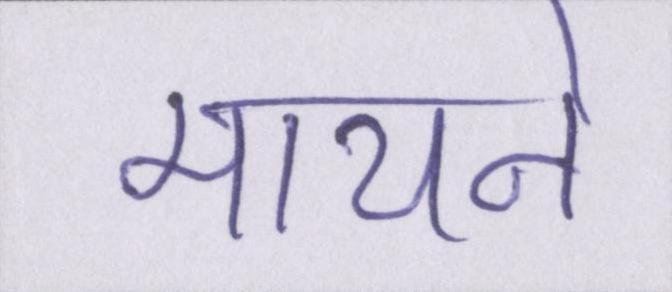 मायने